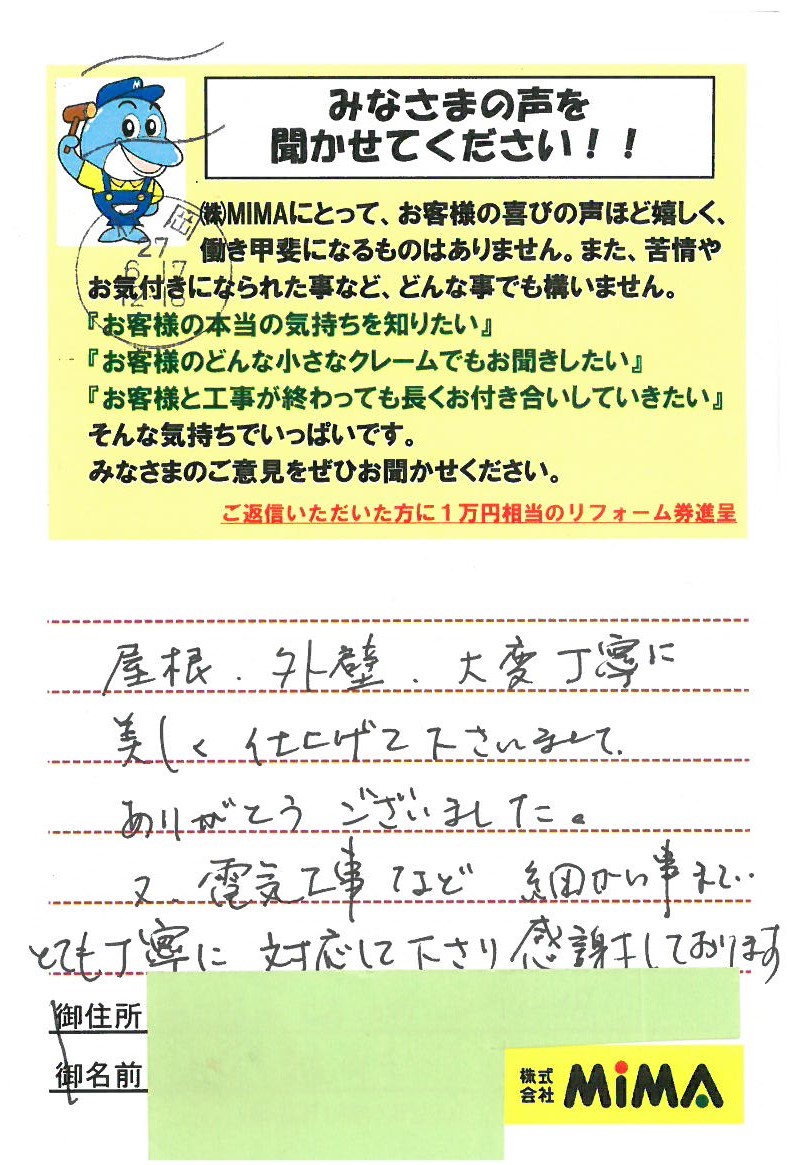 みなさまの声を
聞かせてください！！
㈱MIMAにとって、お客様の喜びの声ほど嬉しく、
働き甲斐になるものはありません。また、苦情や
お気付きになられた事など、どんな事でも構いません。
『お客様の本当の気持ちを知りたい』
『お客様のどんな小さなクレームでもお聞きしたい』
『お客様と工事が終わっても長くお付き合いしていきたい』
そんな気持ちでいっぱいです。
みなさまのご意見をぜひお聞かせください。
ご返信いただいた方に１万円相当のリフォーム券進呈
岡
27
6 17
屋根、外壁、大変丁寧に
美しく仕上げて下さいまして、
ありがとうございました。
又、電気工事など 細かい事まで
とても丁寧に 対応して下さり感謝しております
御住所
御名前
株式会社 MiMA